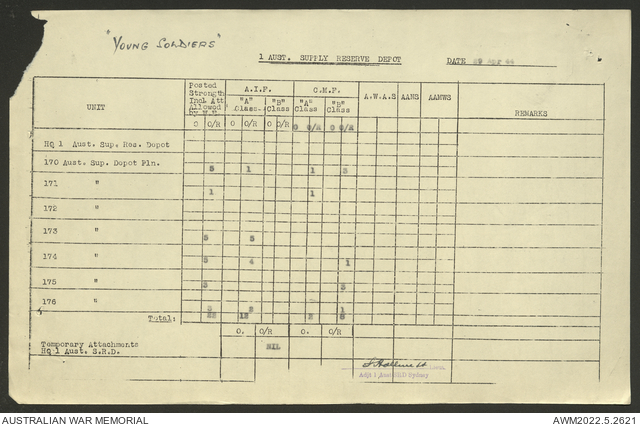 "YOUNG SOLDIERS"
1 AUST. SUPPLY RESERVE DEPOT DATE
UNIT Posted Strength Incl Att Allowed by W.E. A.I.F. C.M.F. A.W.A.S AANS AAMWS REMARKS
"A" Class "B" Class "A" Class "B" Class
O O/R O O/R O O/R O O/R O O/R
HQ 1 Aust. Sup. Res. Depot
170 Aust. Sup. Depot Pln. 5 1 1 3
171 " 1 1
172 "
173 " 5 5
174 " 5 4 1
175 " 3 3
176 " 1
Total:
O. O/R O. O/R
Temporary Attachments NIL
HQ 1 Aust. S.R.D.
Adjt 1 Aust SRD Sydney
AUSTRALIAN WAR MEMORIAL AWM2022.5.2621